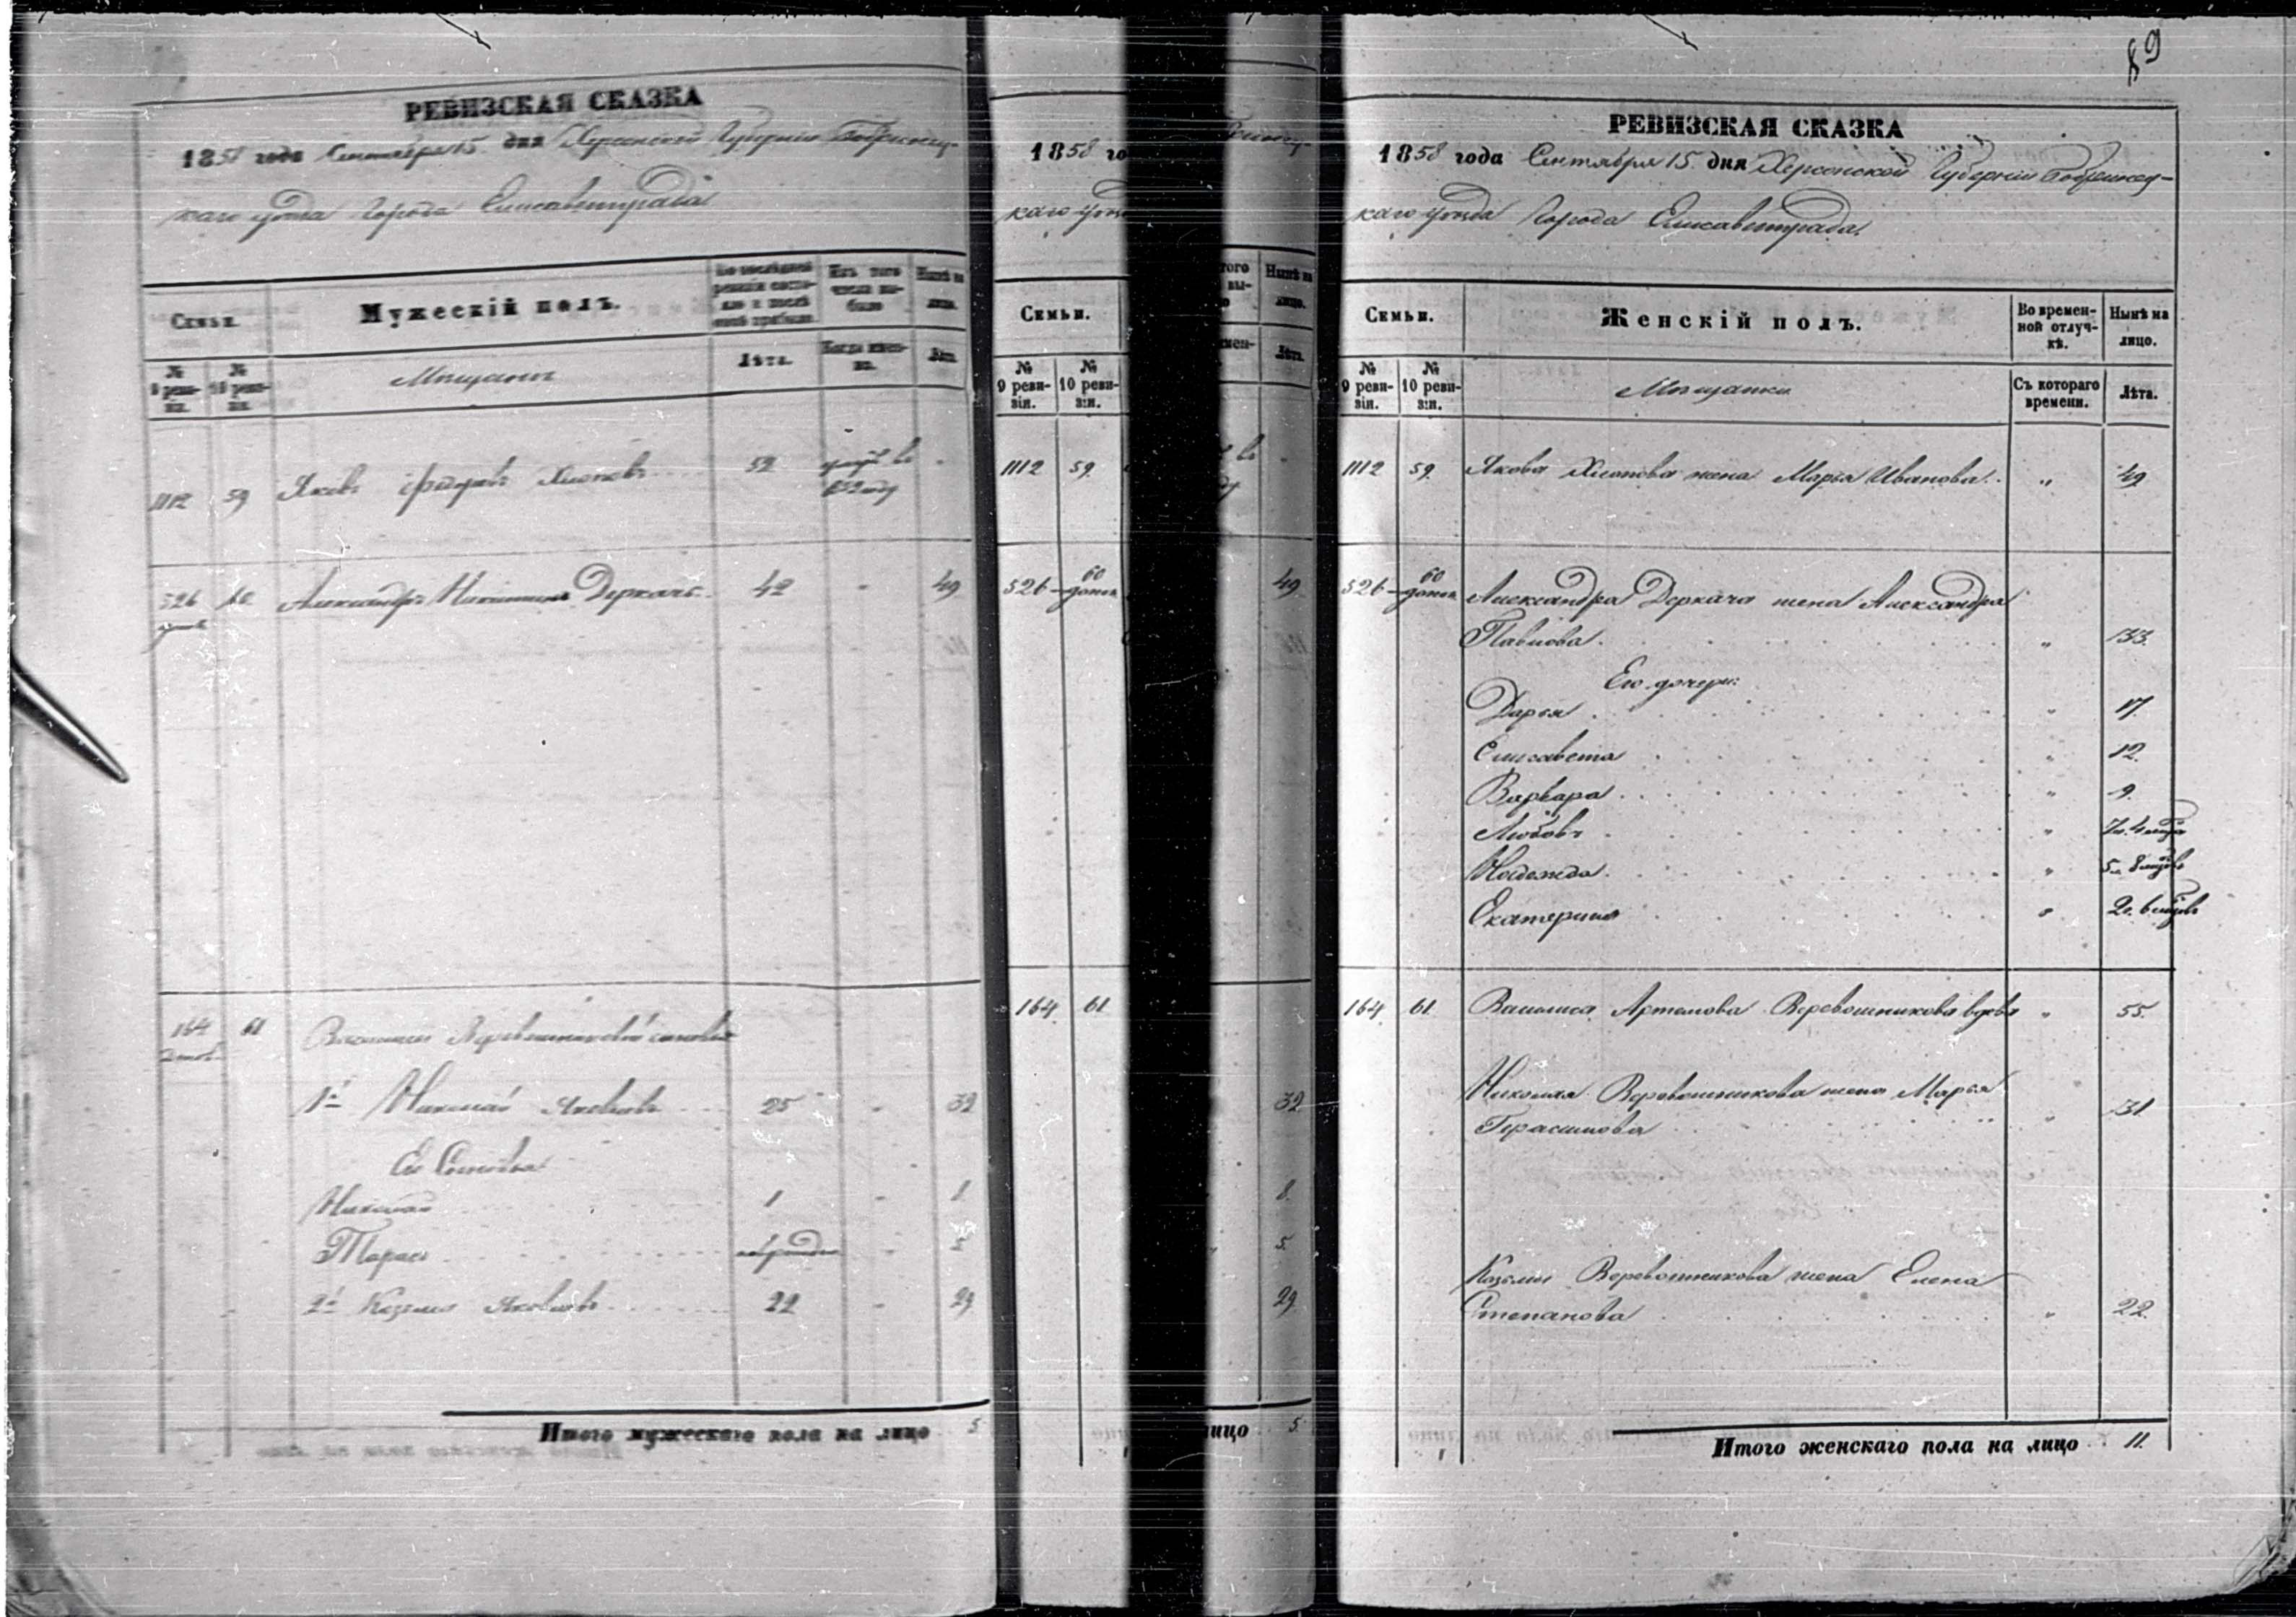 89
РЕВИЗСКАЯ СКАЗКА
1858 года Сентября 15 дня Херсонской Губернии Бобринец-
каго уѣзда Города Елисаветграда
Семьи.
Мужескій полъ.
По послѣдней ревизіи состояло и послѣ оной прибыло
Изъ того числа выбыло
Нынѣ на лицо.
№ 9 ревизіи.
№ 10 ревизіи.
Мѣщане
Лѣта.
Когда имен-но.
Лѣта.
1112 59 Яковъ Федоровъ 52
526 60 Александръ Никитинъ Деркачъ 42 " 49
164 61 Василисы Веревошниковой сыновья
1й Николай Яковлевъ 25 " 32
Его Сыновья
Николай 1 " 8
Тарасъ " 5
2й Козьма Яковлевъ 22 " 29
Итого мужескаго пола на лицо 5
1858 го
каго уѣзд
Семьи.
№ 9 реви-зіи.
№ 10 реви-зіи.
1112 59.
526 60
164 61
того вы-
Нынѣ на лицо.
Лѣта.
49
32
8.
5
29
лицо 5
РЕВИЗСКАЯ СКАЗКА
1858 года Сентября 15 дня Херсонской Губерніи Бобринец-
каго уѣзда Города Елисаветграда.
Семьи.
Женскій полъ.
Во времен-ной отлуч-кѣ.
Нынѣ на лицо.
№ 9 реви-зіи.
№ 10 реви-зіи.
Мѣщанки
Съ котораго времени.
Лѣта.
1112 59. Якова жена Марья Иванова. " 49
526 60 Александра Деркача жена Александра
Павлова. " 33.
Его дочери:
Дарья " 17.
Елисавета " 12.
Варвара " 9.
Любовь "
Надежда. "
Екатерина "
164 61 Василиса Артемова Веревошникова вдова " 55.
Николая Веревошникова жена Марья
Герасимова " 31.
Козьмы Веревошникова жена Елена
Степанова " 22.
Итого женскаго пола на лицо 11.